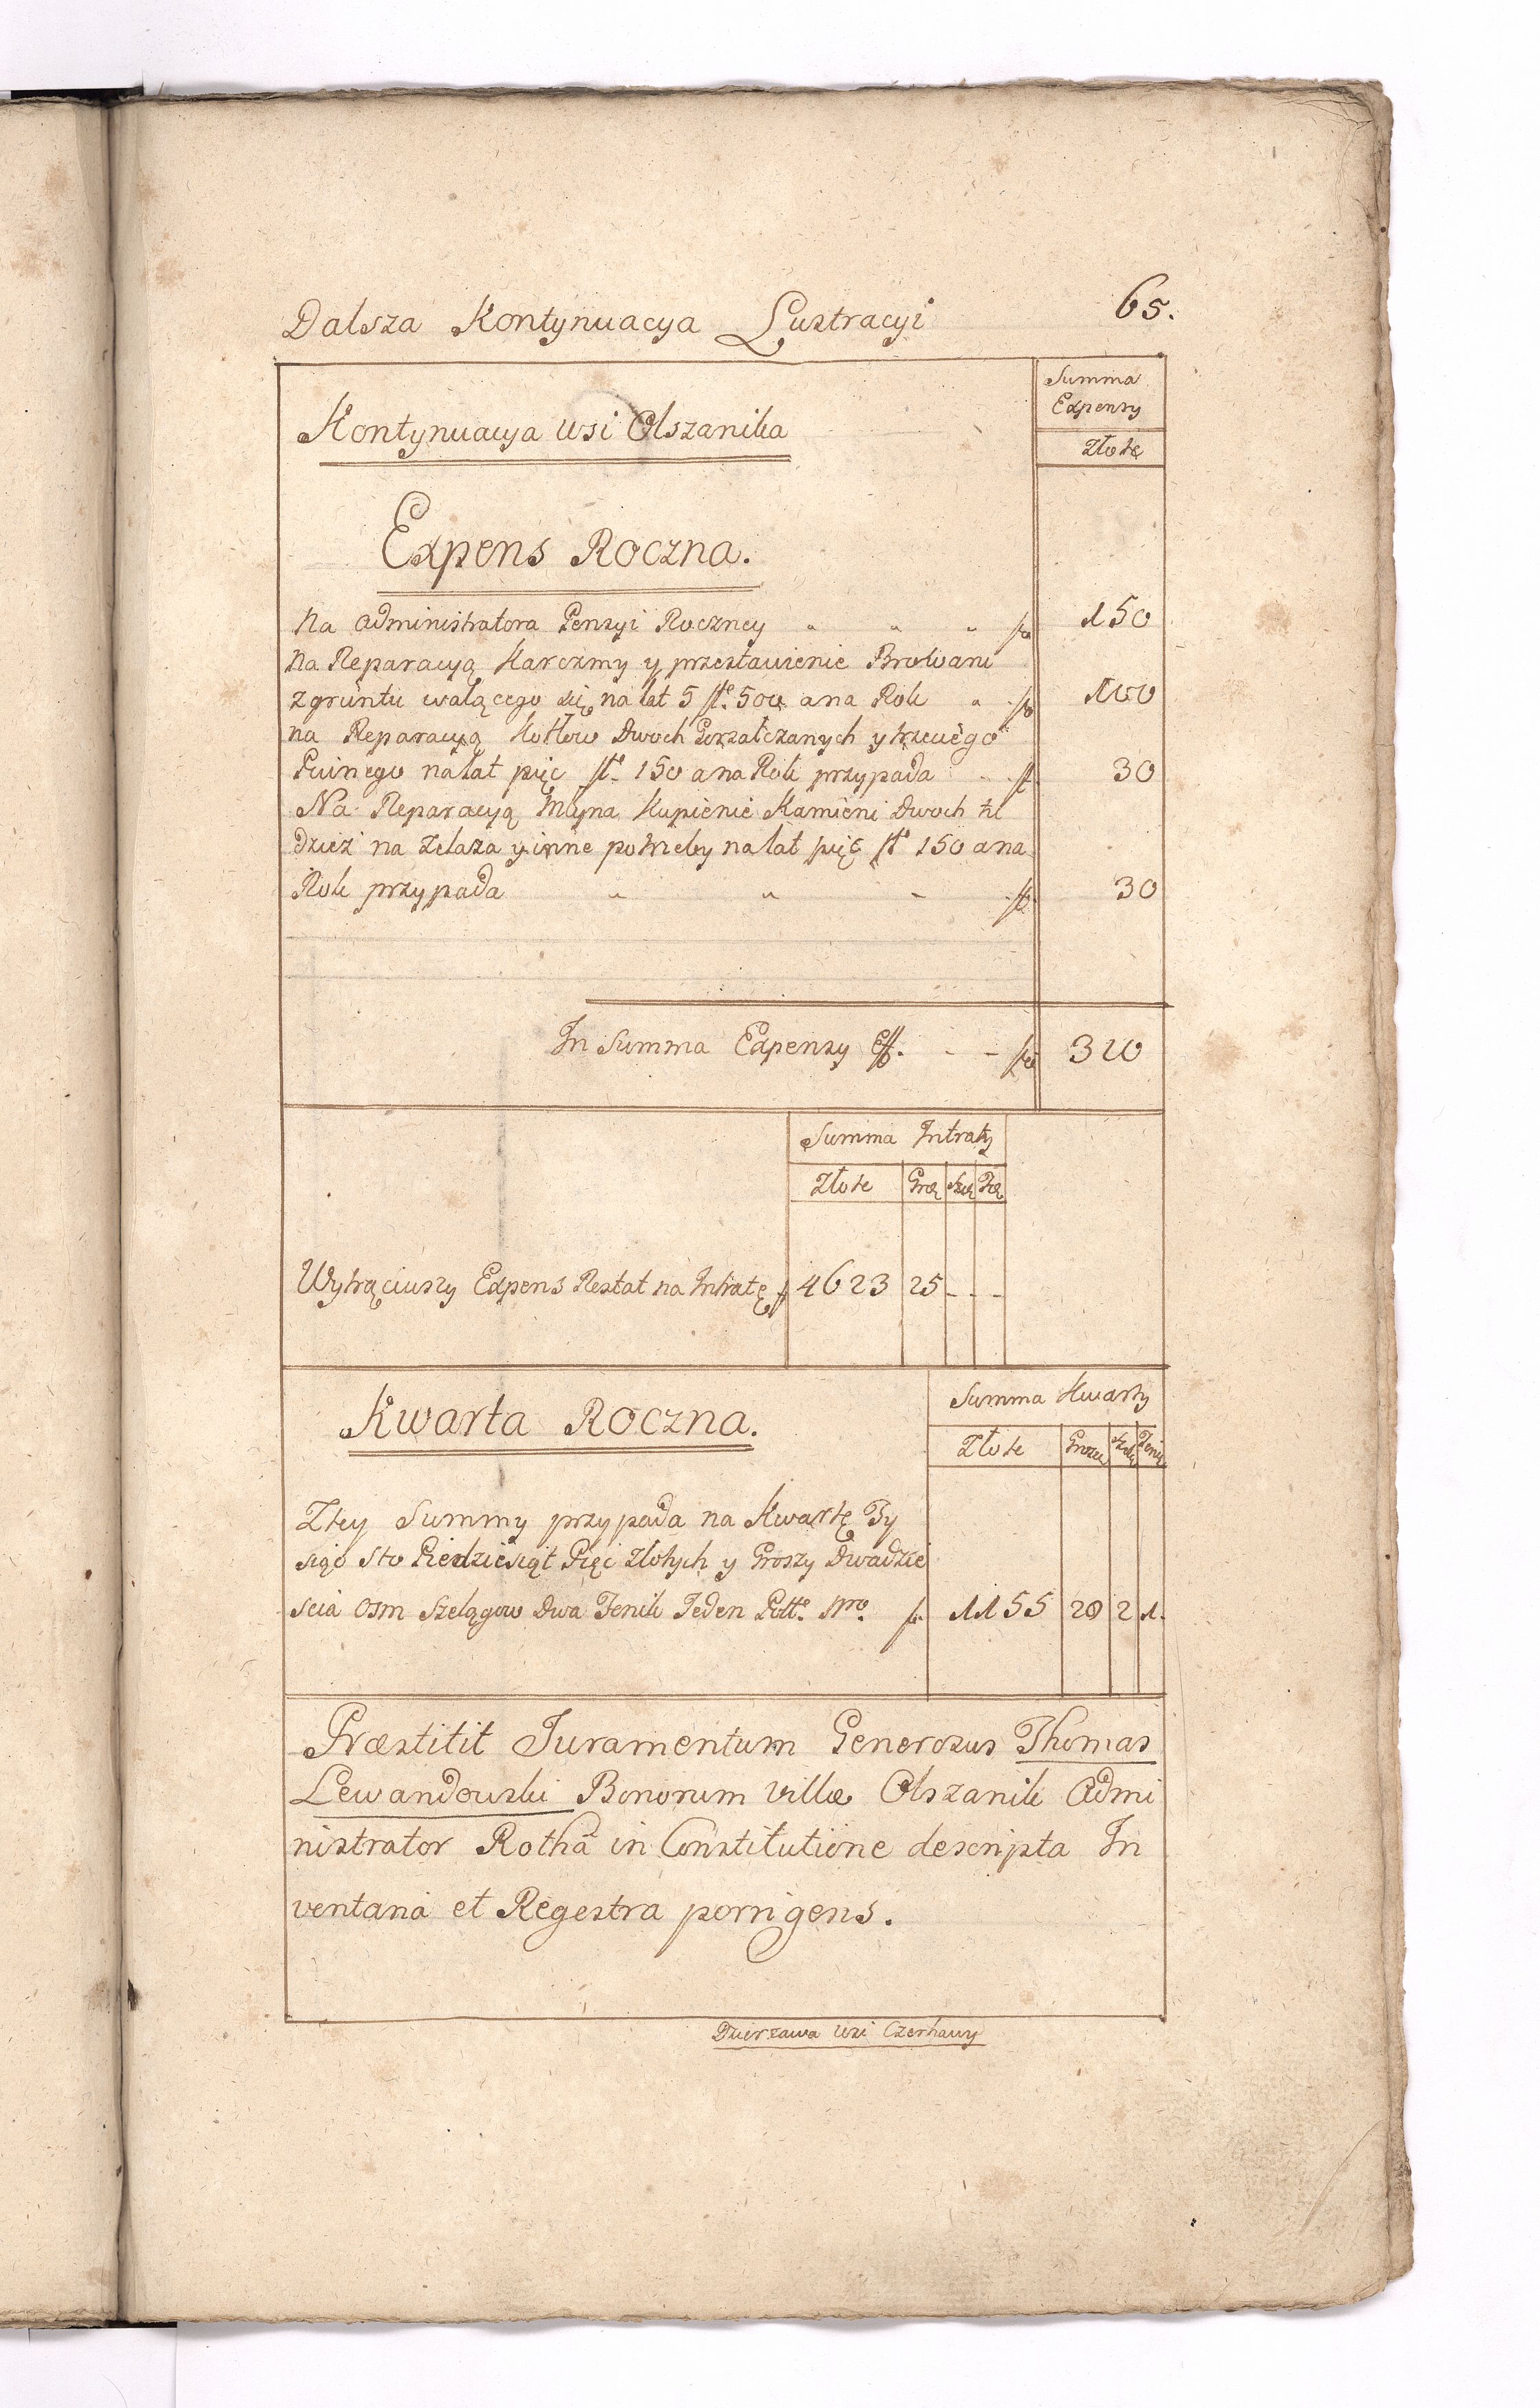 65.
Dalsza Kontynuacya Lustracyi
Summa
Expensy
Kontynuacya wsi Olszanika
Złote
Expens Roczna.
Na administratora Pensyi Roczney " " " fl 150
Na Reparacyą Karczmy y przestawienie Browaru
z gruntu walącego się na lat 5 fl. 500 a na Rok " fl 100
na Reparacyą Kotłow Dwoch Gorzałczanych y trzeciego
Piwnego na lat pięc fl. 150 a na Rok przypada - fl. 30
Na Reparacyą Młyna Kupienie Kamieni Dwoch tu
dziez na Zelaza y inne potrzeby na lat pięć fl. 150 a na
Rok przypada " " - fl. 30
In Summa Expensy - - fl 310
Summa Intraty
Złote Gro Sze Fe
Wytrąciwszy Expens Restat na Intratę fl 4623 25 - - -
Kwarta Roczna.
Summa Kwarty
Złote Grosze Szel Feni
Z tey Summy przypada na Kwartę Ty
siąc Sto Piedziesiąt Pięc Złotych y Groszy Dwadzie
scia Osm Szelągow Dwa Fenik Jeden Poltt. Nro. fl. 1155 28 2 1.
Præstitit Juramentum Generosus Thomas
Lewandowski Bonorum Villæ Olszanik Admi
nistrator Rothā in Constitutione descripta In
ventaria et Regestra porrigens.
Dzierzawa Wsi Czerhawy